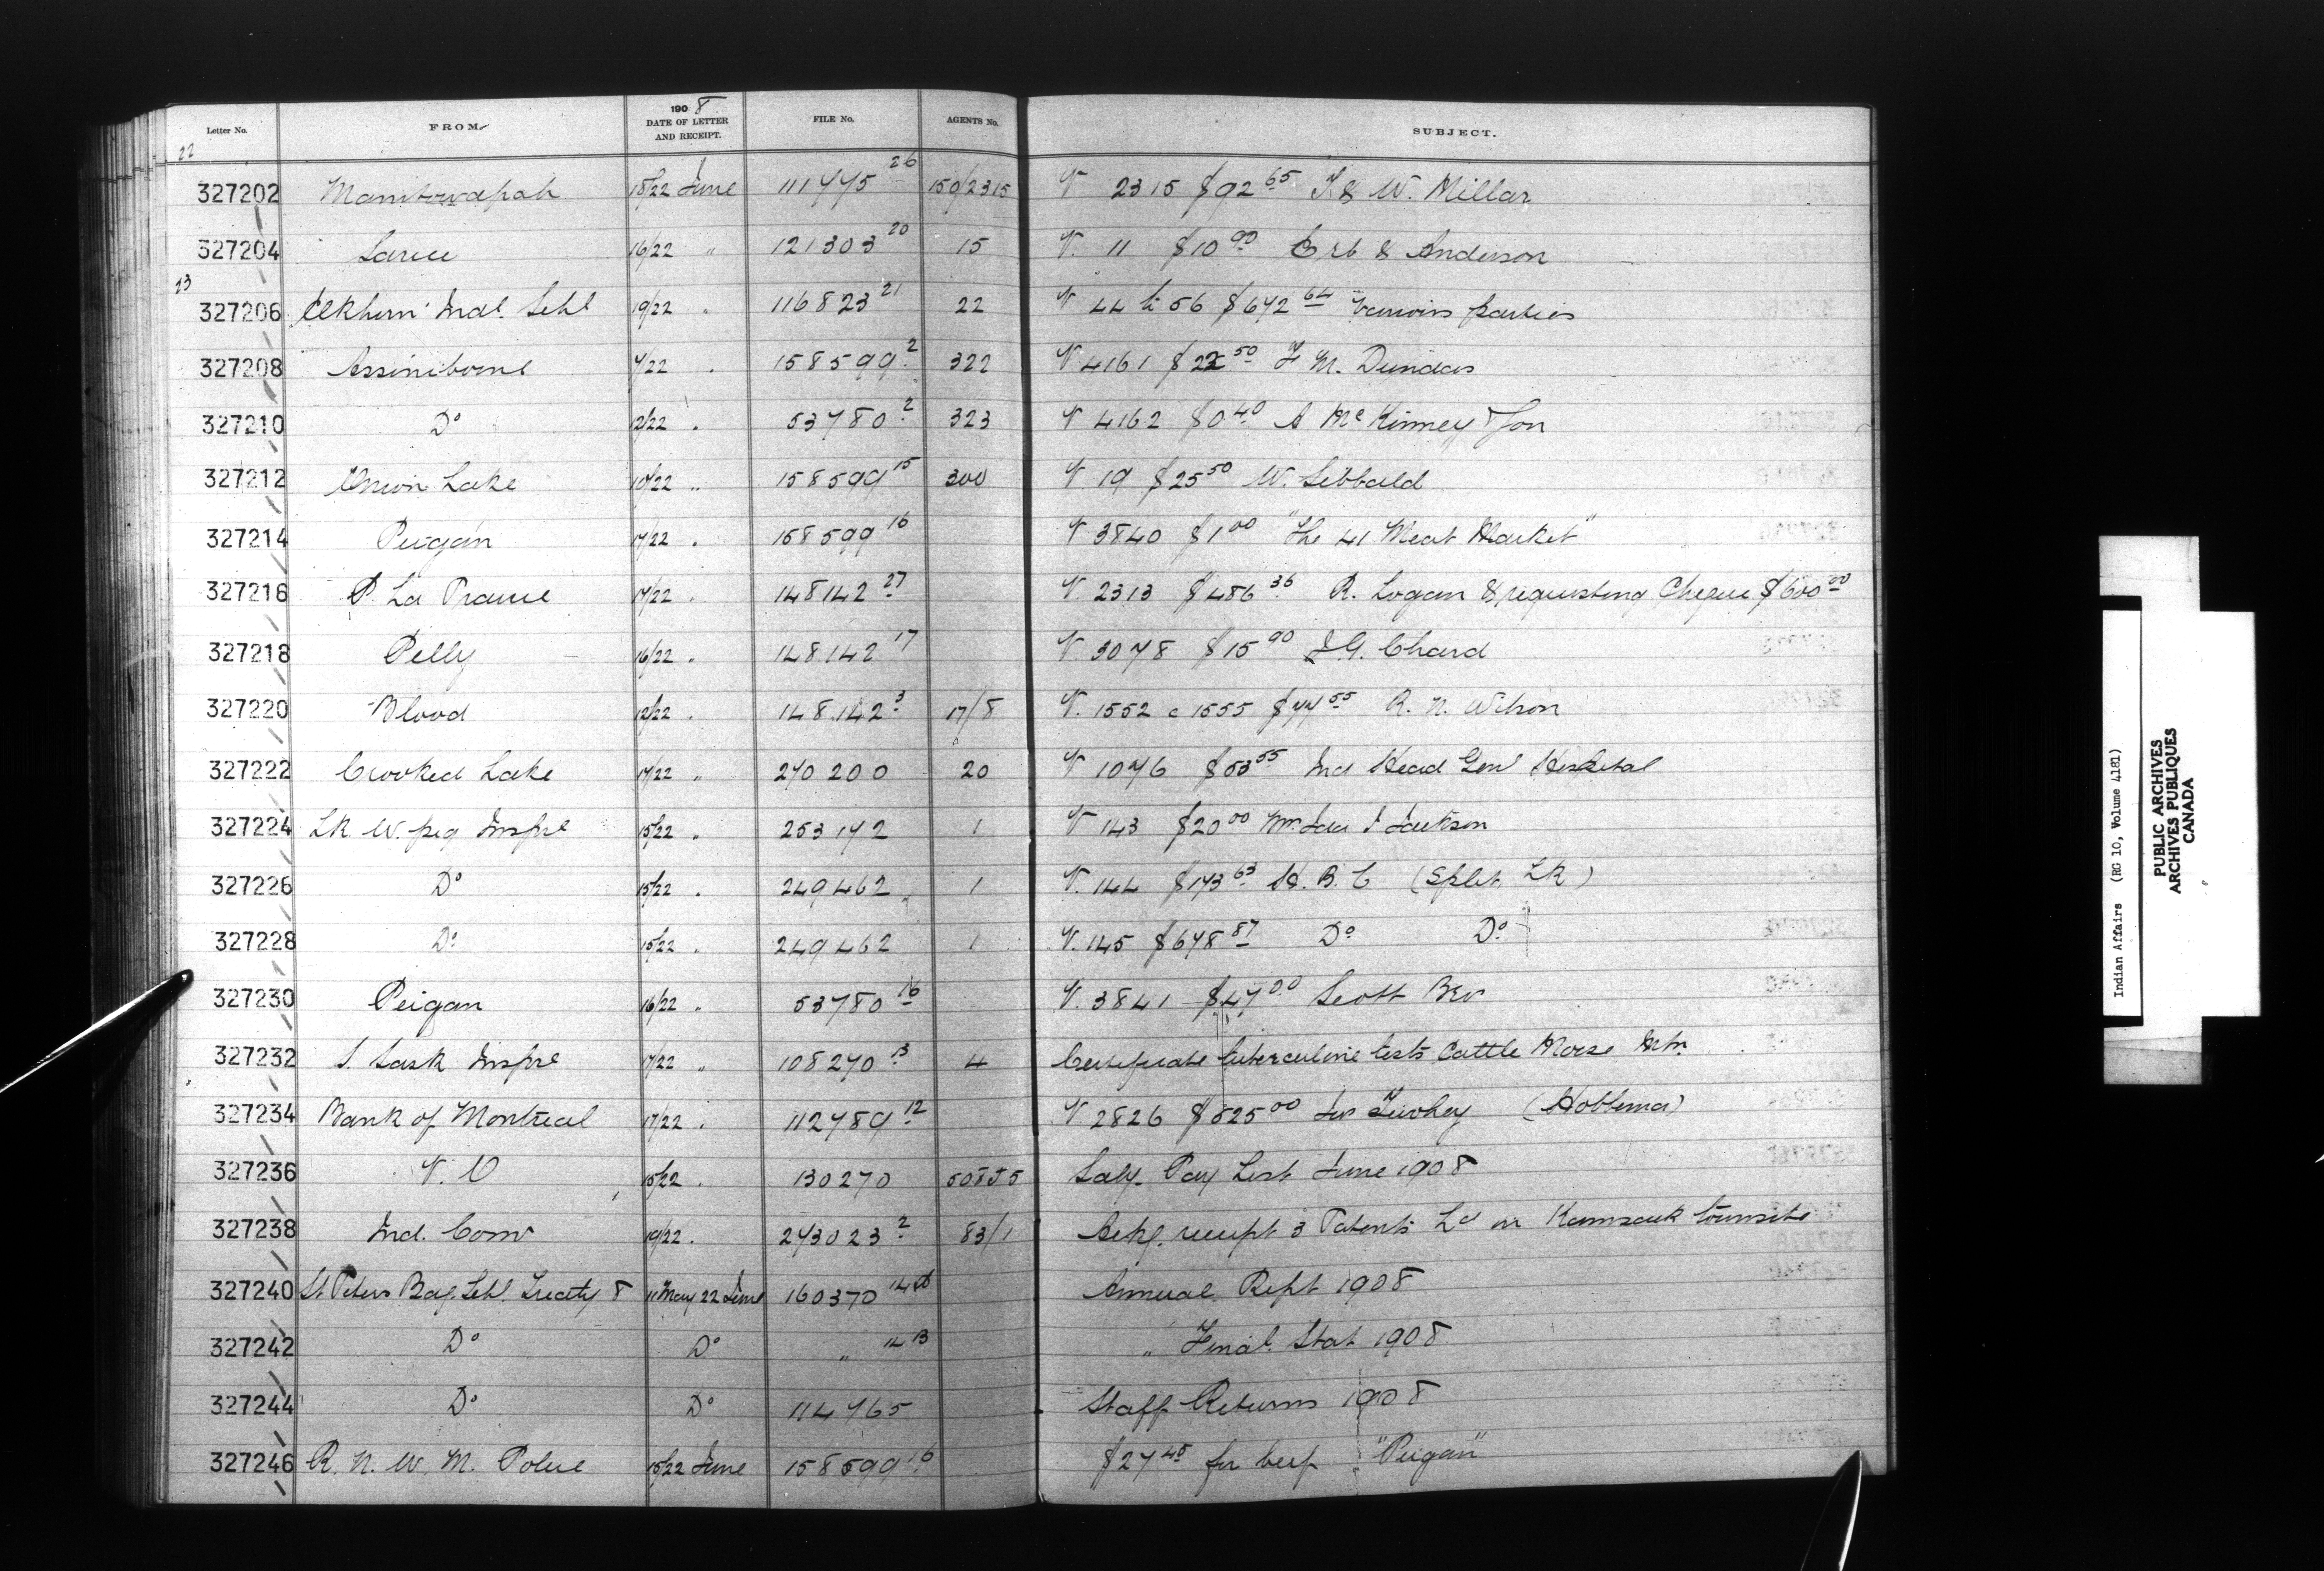 Letter No. FROM 1908 DATE OF LETTER AND RECEIPT. FILE No. AGENTS No. SUBJECT.
22
327202 Manitowapah 18/22 June 111445 26 150/2315 V 2315 $92 65 J & W. Millar
327204 Sarcee 16/22 " 121303 20 15 V. 11 $10 90 Erb & Anderson
23
327206 Elkhorn Indl. Schl 19/22 " 116823 21 22 V 44 to 56 $672 64 Various parties
327208 Assiniboine 7/22 " 158599 2 322 V 4161 $22 50 F M. Dundas
327210 Do 12/22 " 53780 2 323 V 4162 $0 40 A McKinney & Son
327212 Onion Lake 10/22 " 158599 15 300 V 19 $25 50 W. Sibbald
327214 Peigan 17/22 " 158599 16 V 3840 $1 00 "The 41 Meat Market"
327216 P. La Prairie 17/22 " 148142 27 V. 2313 $486 36 R. Logan & requesting Cheque $600 00
327218 Pelly 16/22 " 148142 17 V. 3078 $15 90 J G. Chard
327220 Blood 12/22 " 148142 3 17/8 V. 1552 c 1555 $77 55 R. N. Wilson
327222 Crooked Lake 17/22 " 270200 20 V 1076 $53 55 Ind Head Genl Hospital
327224 Lk W.peg Inspre 15/22 " 253172 1 V 143 $20 00 Ida J Jackson
327226 Do 15/22 " 249462 1 V. 144 $173 63 H. B. C (Split Lk)
327228 Do 15/22 " 249462 1 V. 145 $678 87 Do Do
327230 Peigan 16/22 " 53780 16 V. 3841 $47 00 Scott Bro
327232 S. Sask Inspre 17/22 " 108270 13 4 Certificate tuberculine tests Cattle Moose Mtn.
327234 Bank of Montreal 17/22 " 112789 12 V. 2826 $525 00 Jas Twohey (Hobbema)
327236 V. O 15/22 " 130270 508J5 Saly Pay List June 1908
327238 Ind. Comr 19/22 " 273023 2 83/1 Ackg. receipt 3 Patents Ld in Kamsack townsite
327240 St Peters Bdg. Schl. Treaty 8 11 May 22 June 160370 14 Annual Rept 1908
327242 Do Do " 14 B " Finol. Stat 1908
327244 Do Do 114765 Staff Returns 1908
327246 R. N. W. M. Police 15/22 June 158599 16 $27 45 for beef "Peigan"
Indian Affairs (RG 10, Volume 4181)
PUBLIC ARCHIVES
ARCHIVES PUBLIQUES
CANADA